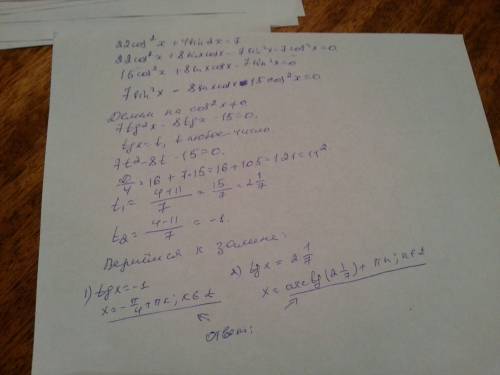 22cos²x + 4sin2x = 7
22cos²x + 8sinxcosx - 7sin²x - 7cos²x = 0
16cos²x + 8sinxcosx - 7sin²x = 0
7sin²x - 8sinxcosx - 15cos²x = 0
Делим на cos²x ≠ 0
7tg²x - 8tgx - 15 = 0.
tgx = t, t любое число.
7t² - 8t - 15 = 0.
D/4 = 16 + 7·15 = 16 + 105 = 121 = 11²
t₁ = (4+11)/7 = 15/7 = 2 1/7
t₂ = (4-11)/7 = -1.
Вернёмся к замене:
1) tgx = -1
x = -π/4 + πk; k∈Z
2) tgx = 2 1/7
x = arctg(2 1/7) + πn; n∈Z
ответ: